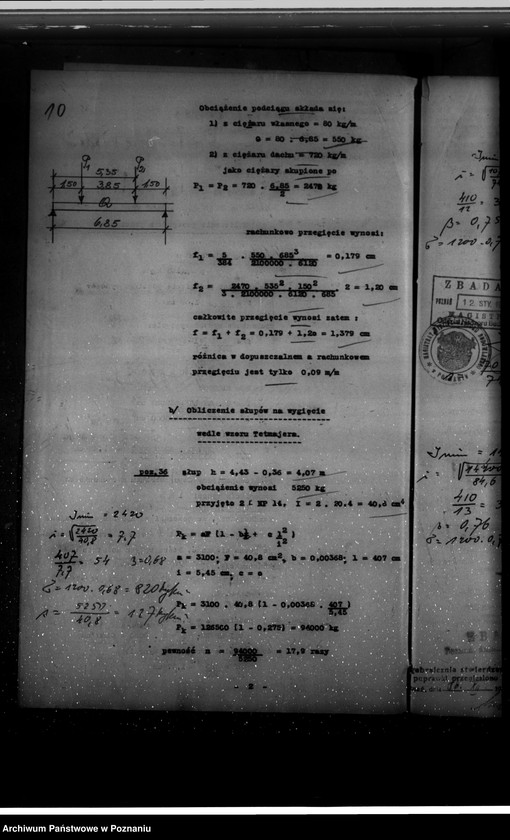 10
Obciążenie podciągu składa się:
1) z ciężaru własnego = 80 kg/m
G = 80 . 6,85 = 550 kg
2) z ciężaru dachu = 720 kg/m
jako ciężary skupione po
P1 = P2 = 720 . 6,85/2 = 2470 kg
P1 P2
5,35
150 3,85 150
Q
6,85
rachunkowe przegięcie wynosi:
f1 = 5/384 . 550 . 685³/2100000 . 6120 = 0,179 cm
f2 = 2470 . 535² . 150²/3 . 2100000 . 6120 . 685 . 2 = 1,20 cm
całkowite przegięcie wynosi zatem :
f = f1 + f2 = 0,179 + 1,20 = 1,379 cm
różnica w dopuszczalnem a rachunkowem
przegięciu jest tylko 0,09 m/m
b/ Obliczenie słupów na wygięcie
wedle wzoru Tetmajera.
poz.36 słup h = 4,43 - 0,36 = 4,07 m
obciążenie wynosi 5250 kg
przyjęto 2 [ NP 14, F = 2 . 20.4 = 40,8 cm²
J min = 2420
i = √2420/40,8 = 7,7
407/7,7 = 54 β=0,68
σ = 1200 . 0,68 = 820 kg/cm
s = 5250/40,8 = 127 kg/cm
Pk = aF (1 - b l/i + c l²/i²)
a = 3100; F = 40,8 cm², b = 0,00368; l = 407 cm
i = 5,45 cm; c = o
Pk = 3100 . 40,8 (1 - 0,00368 . 407/5,45)
Pk = 126500 (1 - 0,275) = 94000 kg
pewność n = 94000/5250 = 17,9 razy
- 2 -
J min
410/13
β = 0,75
σ = 1200 . 0,7
ZBADA
POZNAŃ 12. STY
MAGISTR
J min = 1
84,6
410/13 = 3
β = 0,76
σ = 1200 . 0,
Archiwum Państwowe w Poznaniu